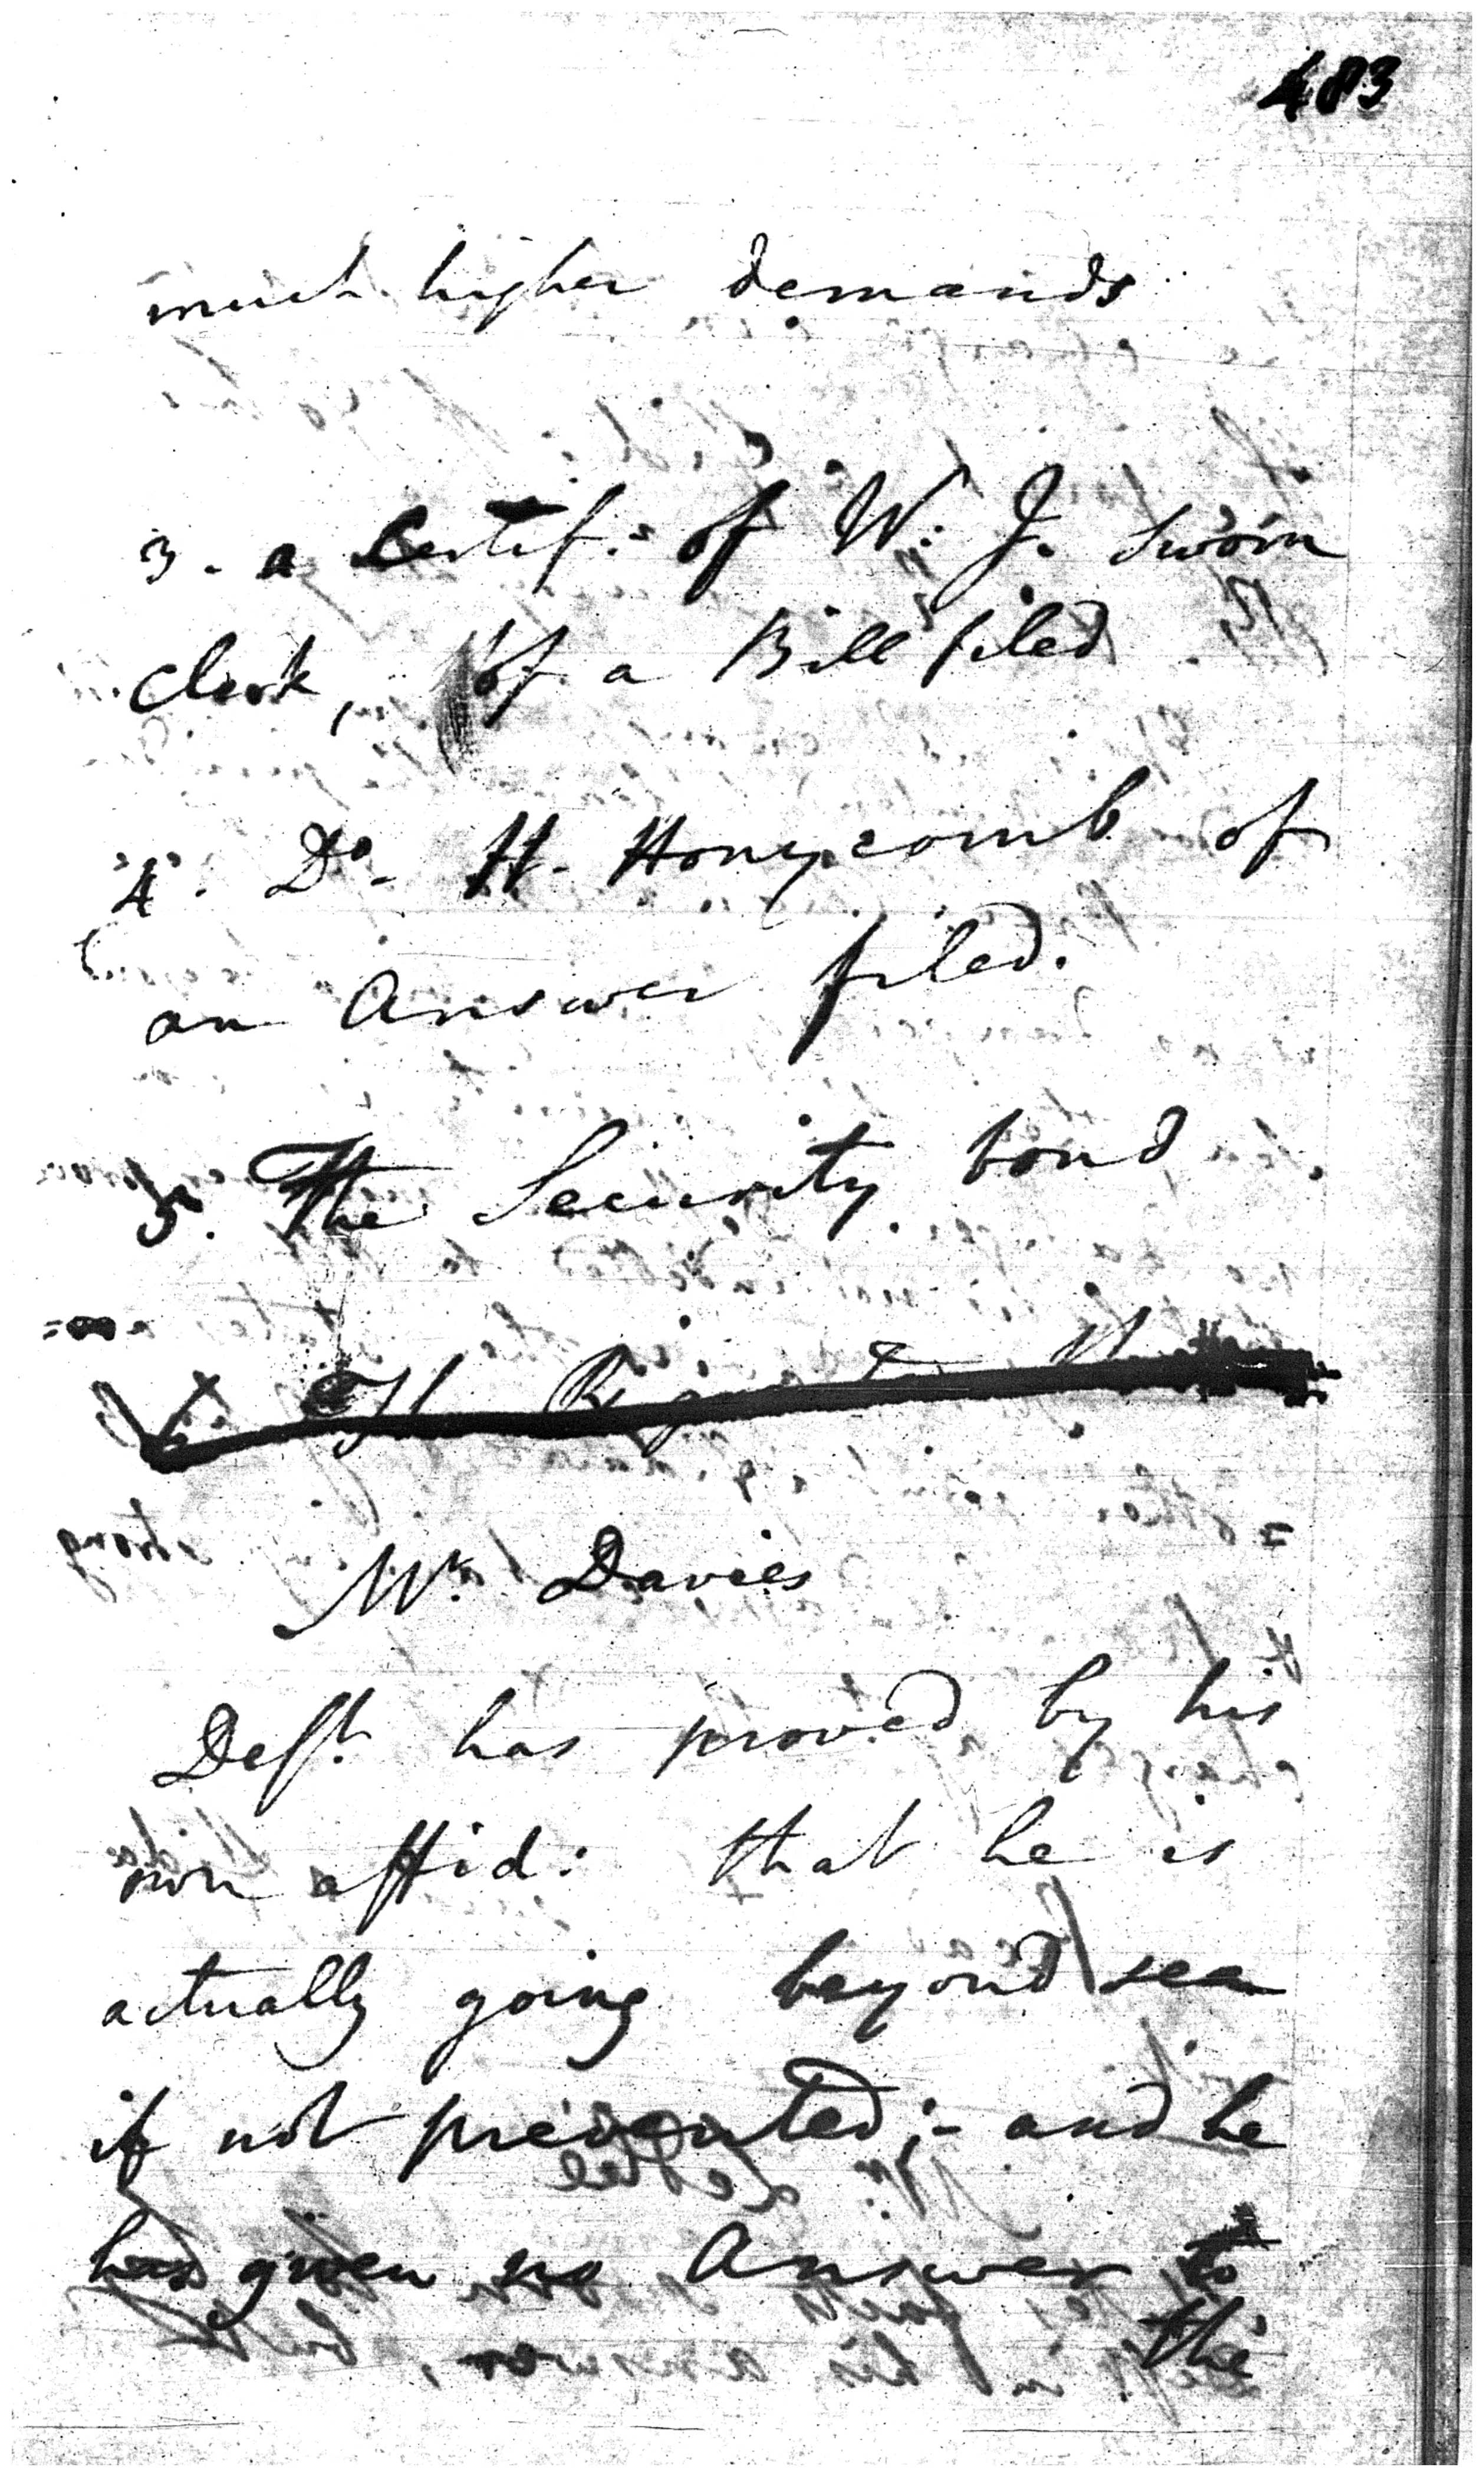 483
much higher demands
3. a Certif: of W: J. sworn
clerk, of a Bill filed
4. Do. H. Honeycomb of
an Answer filed.
5. The Security bond
Mr. Davies
Deft. has proved by his
own affid: that he is
actually going beyond sea
if not prevented;- and he
has given no Answer to
the